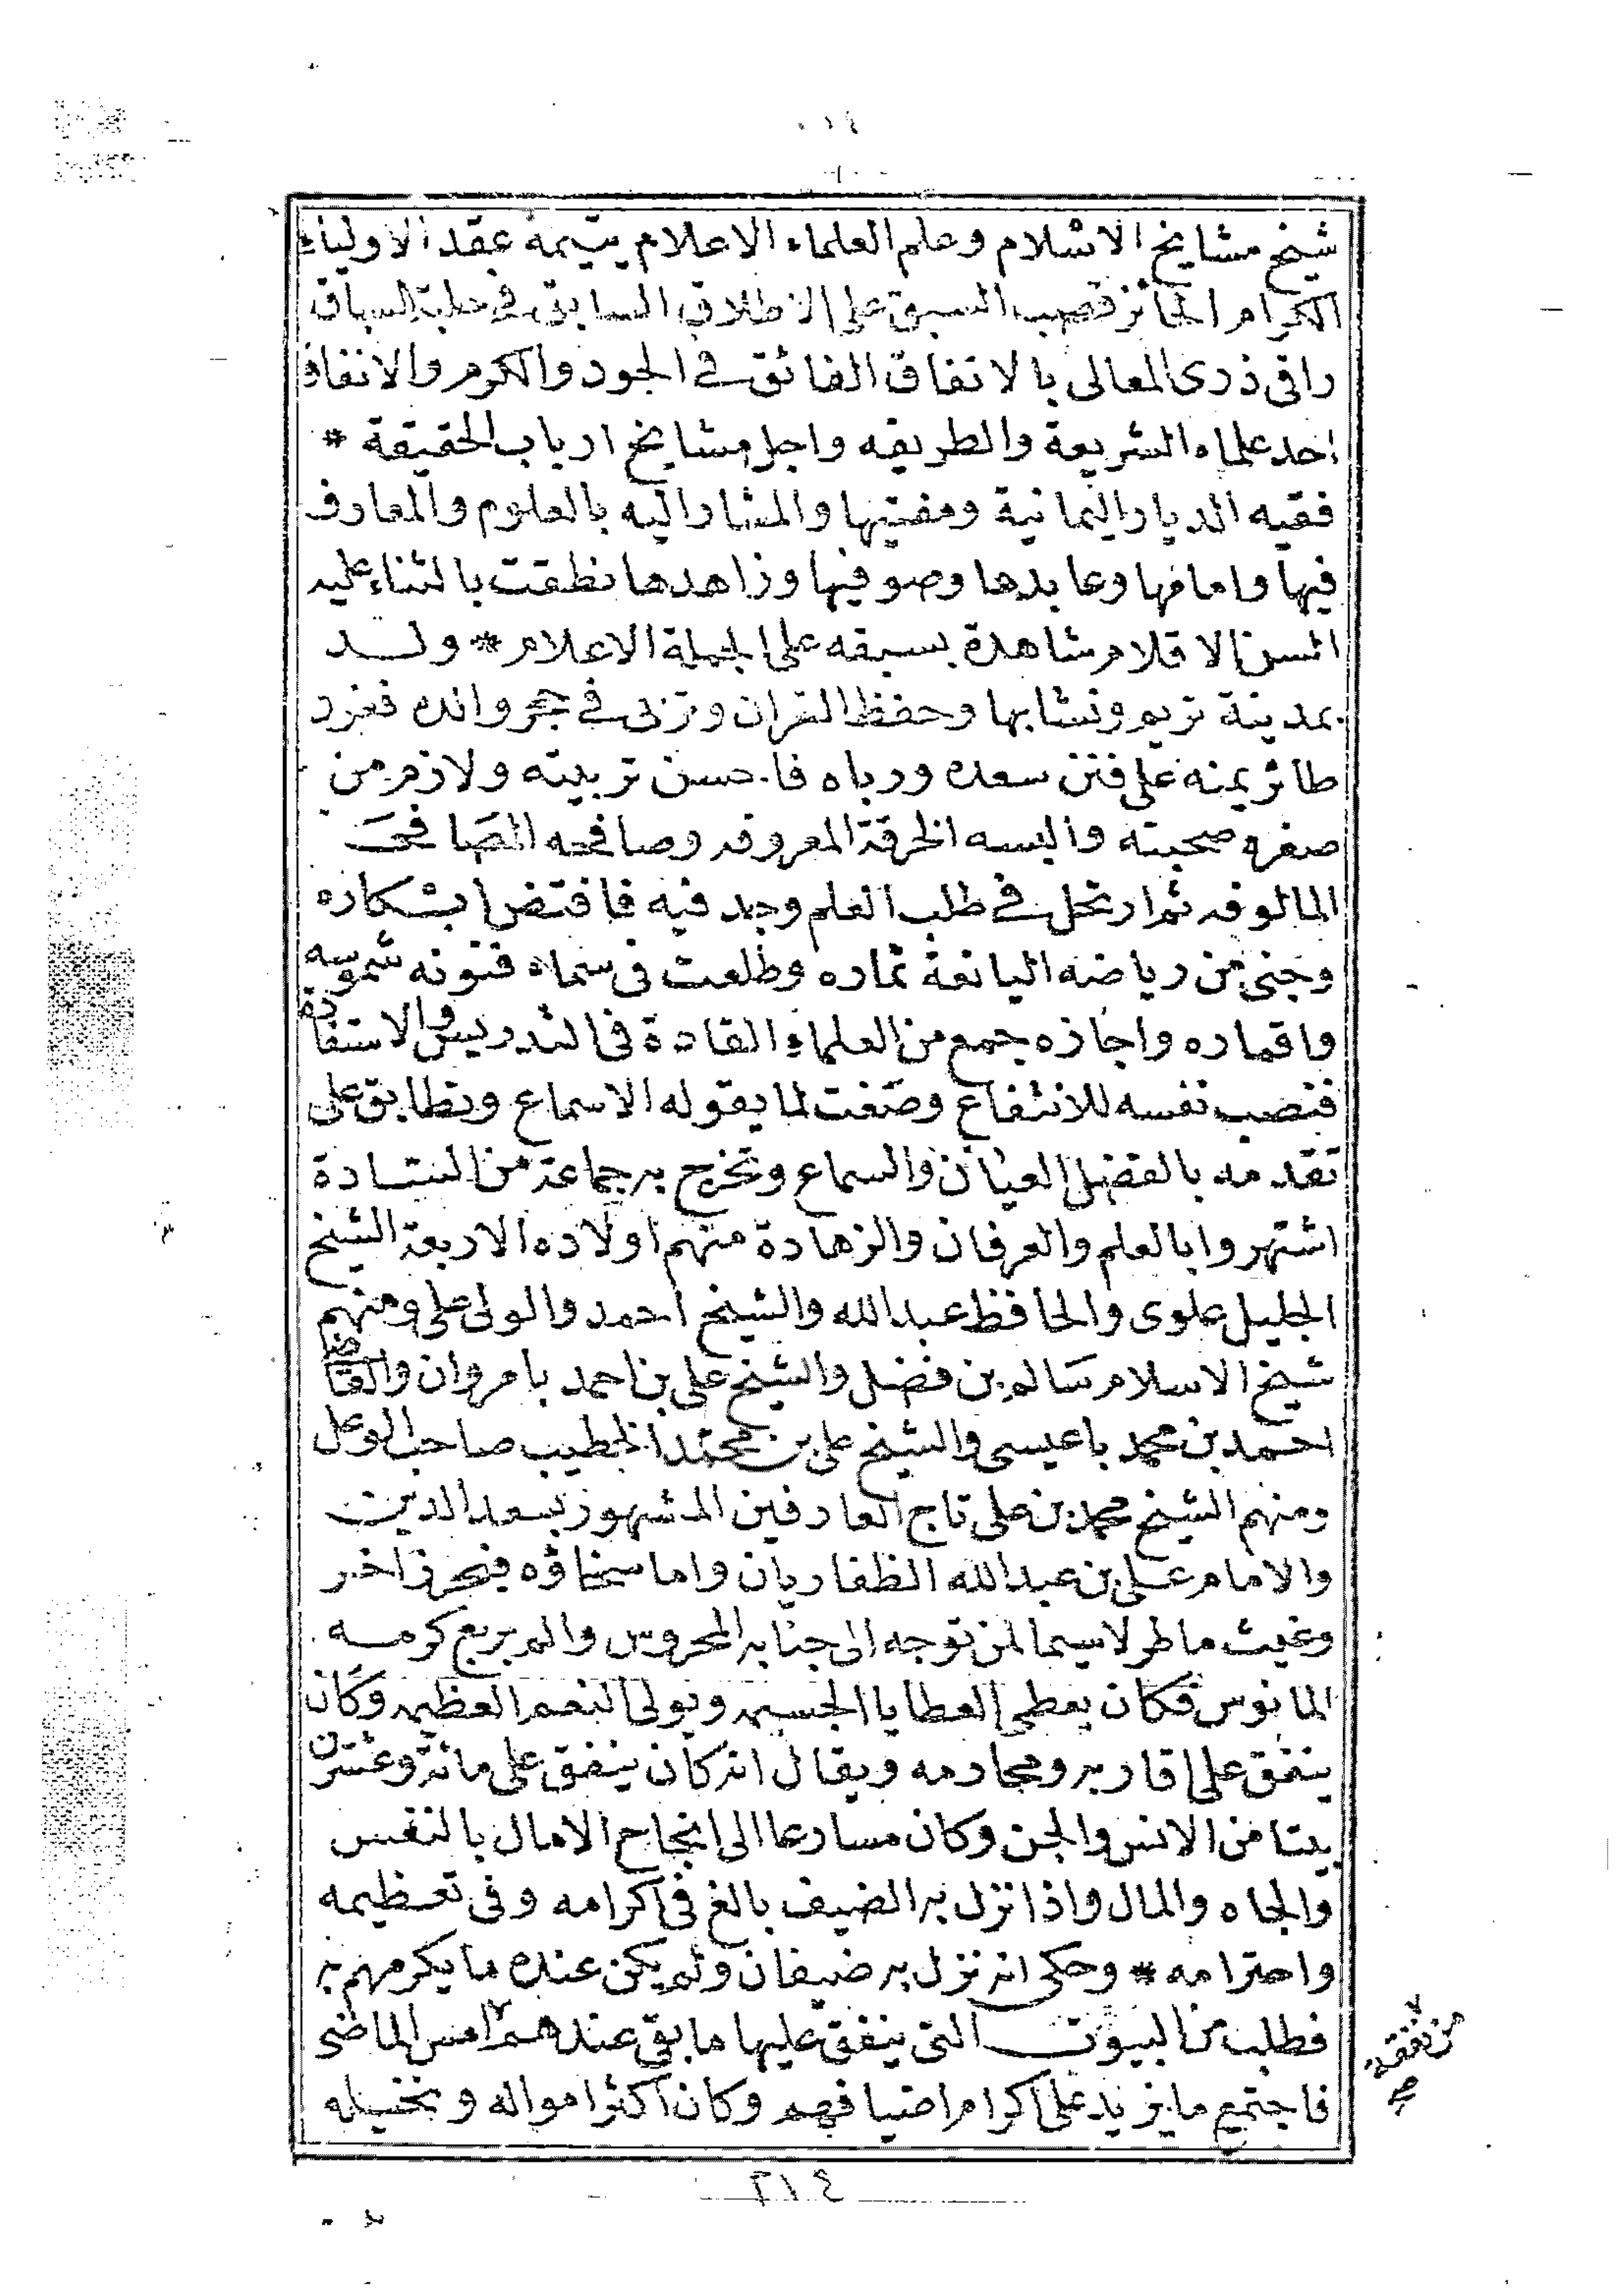 شيخ مشايخ الاسلام وعلم العلماء الاعلام يتيمة عقد الاولياء
الكرام الحائز قصب السبق على الاطلاق السابق في حلبة السباق
راقى ذرى المعالى بالاتفاق الفائق في الجود والكرم والانفاق
احد علماء الشريعة والطريقه واجل مشايخ ارباب الحقيقة *
فقيه الديار اليمانية ومفتيها والمشار اليه بالعلوم والمعارف
فيها وامامها وعابدها وصوفيها وزاهدها نطقت بالثناء عليه
السن الاقلام شاهدة بسبقه على الجملة الاعلام * ولد
بمدينة تريم ونشا بها وحفظ القران وتربى في حجر والده فغرد
طائر يمنه على فنن سعده ورباه فاحسن تربيته ولازم من
صغره صحبته والبسه الخرقة المعروفه وصافحه المصافحة
المالوفه ثم ارتحل في طلب العلم وجد فيه فافتض ابتكاره
وجنى من رياضه اليانعة ثماره وطلعت في سماء فنونه شموسه
واقماره واجازه جمع من العلماء القادة فى التدريس والاستفادة
فنصب نفسه للانتفاع وصغت لما يقوله الاسماع وتطابق على
تقدمه بالفضل العيان والسماع وتخرج به جماعة من السادة
اشتهروا بالعلم والعرفان والزهادة منهم اولاده الاربعة الشيخ
الجليل علوى والحافظ عبدالله والشيخ احمد والولى على ومنهم
شيخ الاسلام سالم بن فضل والشيخ على بن احمد بامروان والقاضي
احمد بن محمد باعيسى والشيخ على بن محمد الخطيب صاحب الوعل
ومنهم الشيخ محمد بن على تاج العارفين المشهور بسعد الدين
والامام على بن عبدالله الظفاريان واما سخاؤه فبحر زاخر
وغيث ماطر لاسيما لمن توجه الى جنابه المحروس والم بربع كرمه
المانوس فكان يعطى العطايا الجسيمه ويولى النعم العظيمه وكان
ينفق على اقاربه ومحارمه ويقال انه كان ينفق على مائة وعشرين
بيتا من الانس والجن وكان مسارعا الى انجاح الامال بالنفس
والجاه والمال واذا نزل به الضيف بالغ فى اكرامه وفى تعظيمه
واحترامه * وحكى انه نزل به ضيفان ولم يكن عنده ما يكرمهم به
فطلب من البيوت التى ينفق عليها ما بقى عندهم امس الماضى
من نفقة صح
فاجتمع ما يزيد على اكرام اضيافهم وكان اكثر امواله ونخيله
٢١٤